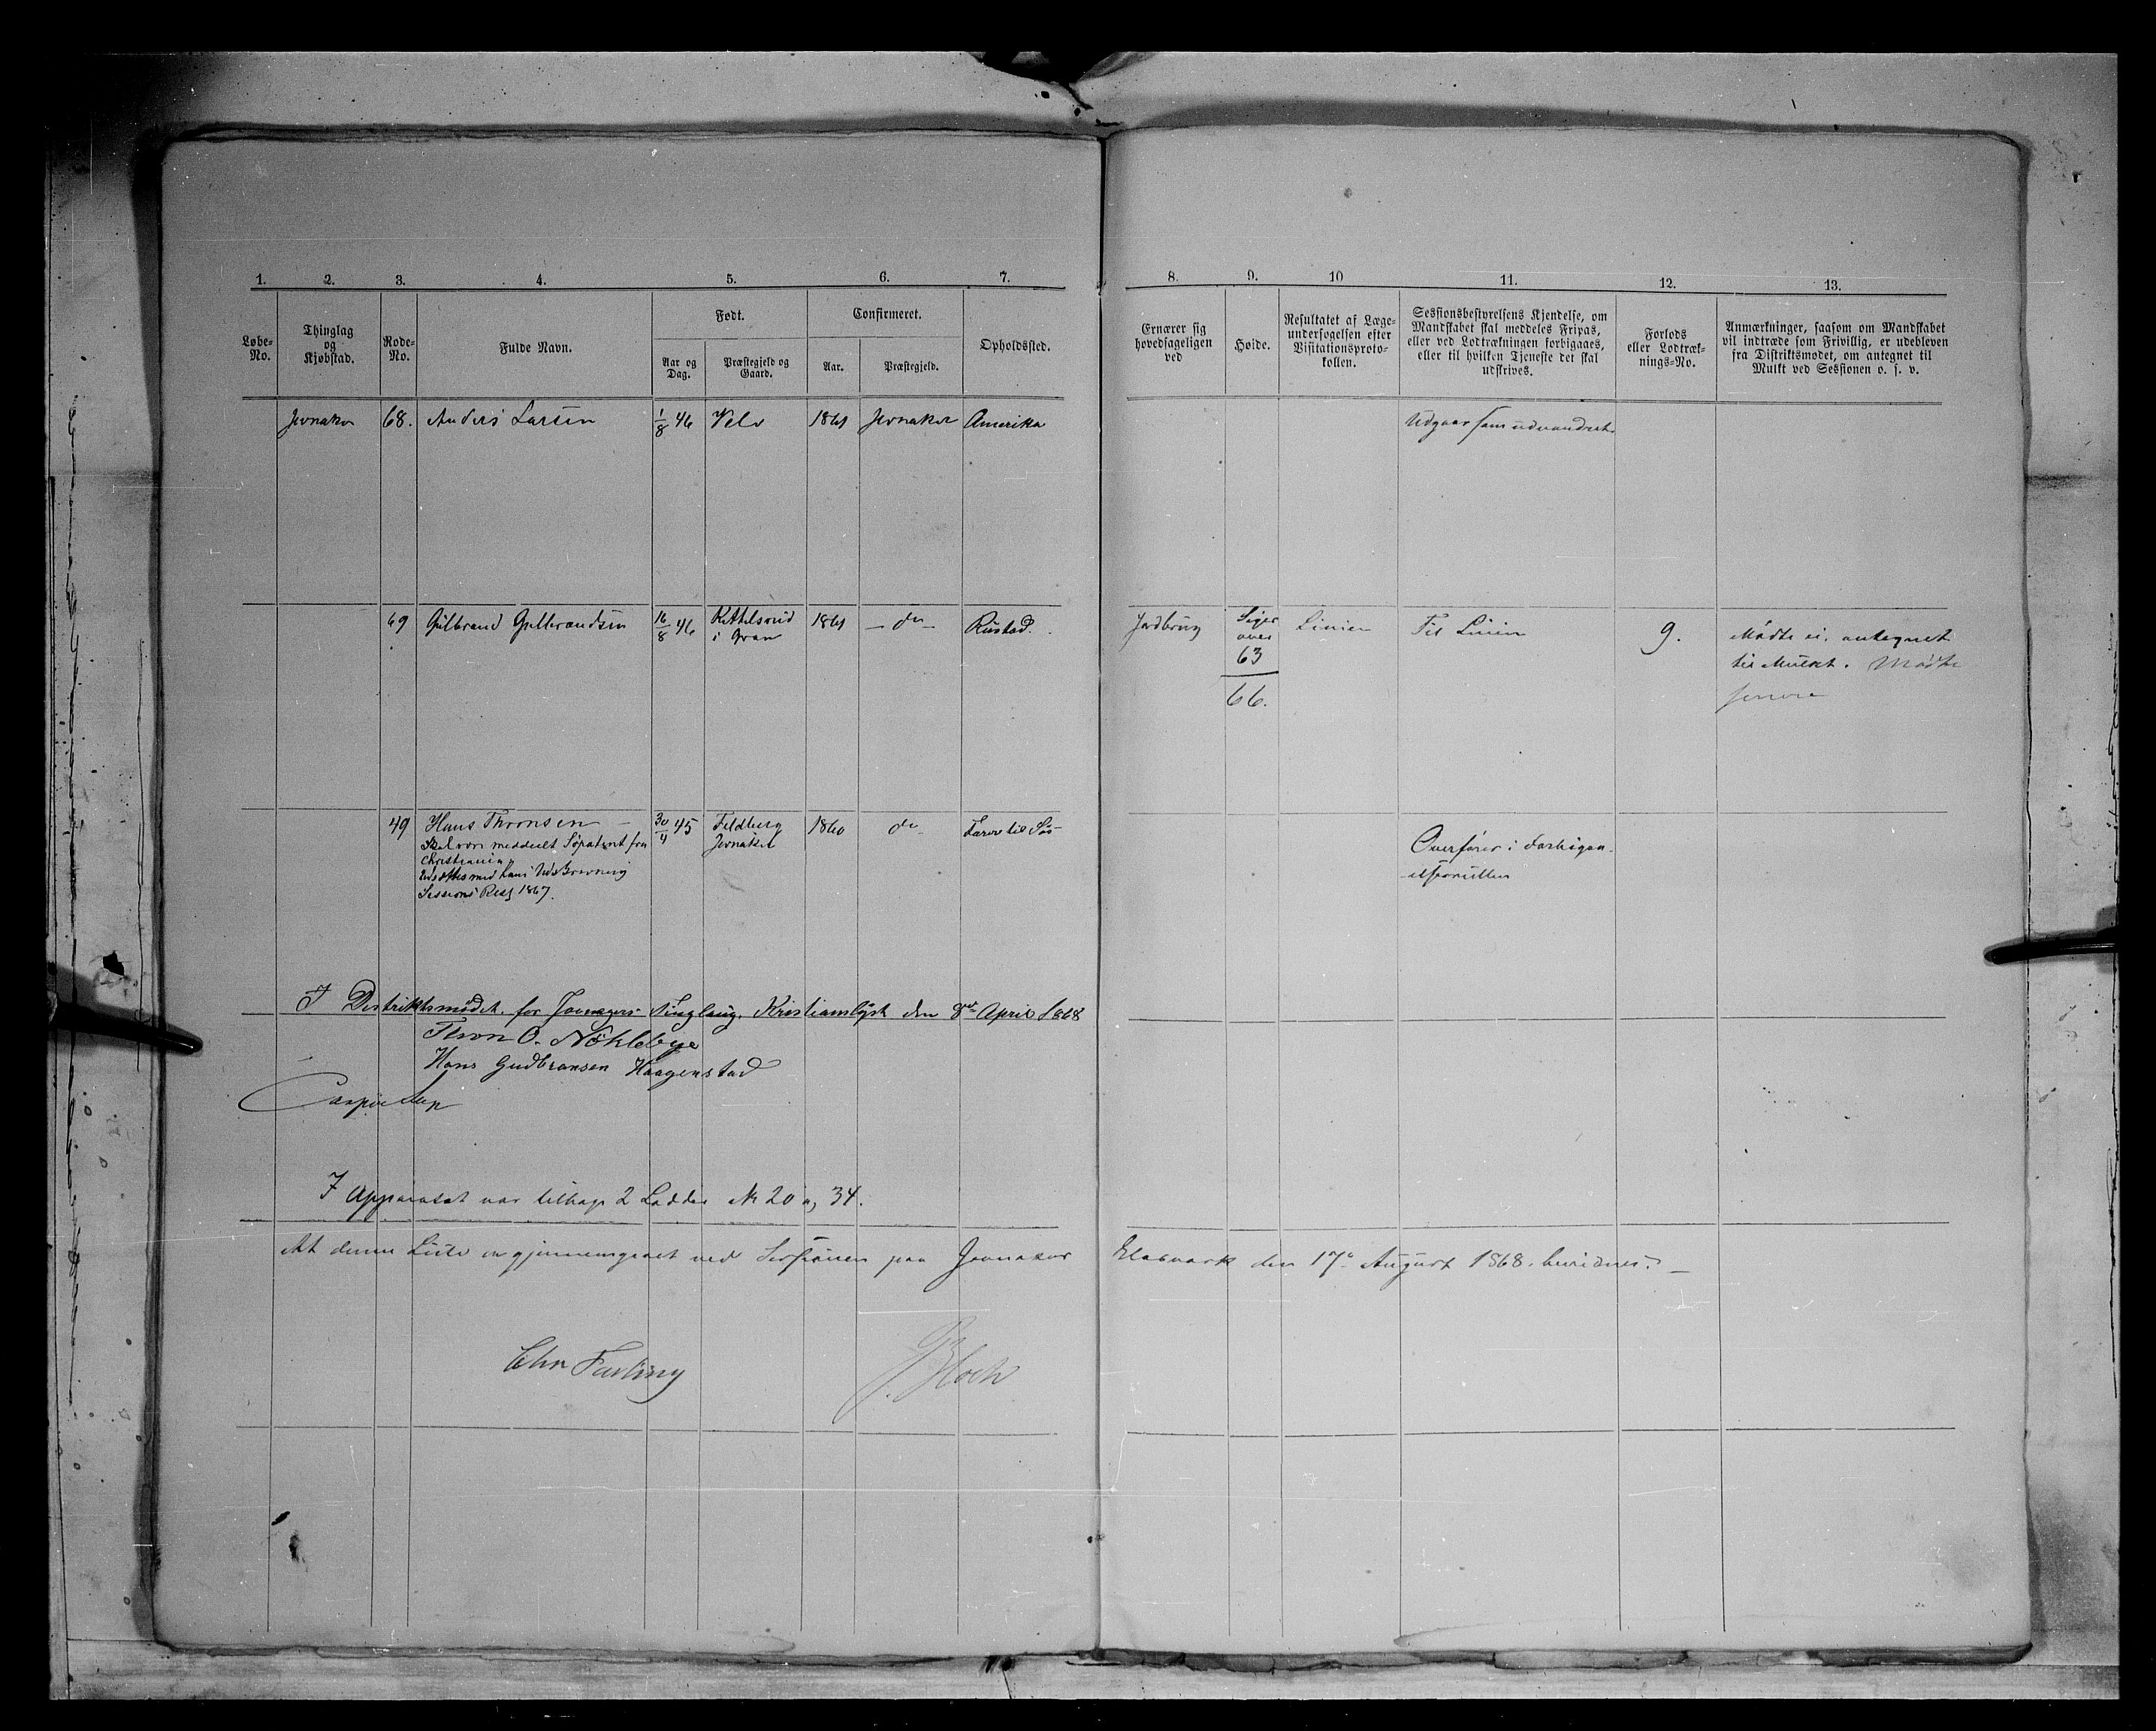 1. 2. 3. 4. 5. 6. 7. 8. 9. 10 11. 12. 13.
Løbe-No. Thinglag og Kjøbstad. Rode-No. Fulde Navn. Født. Aar og Dag. Præstegjeld og Gaard. Confirmeret. Aar. Præstegjeld. Opholdssted.
Ernærer sig hovedsageligen ved
Høide.
Resultatet af Læge-
undersøgelsen efter
Visitationsproto-
kollen.
Sessionsbestyrelsens Kjendelse, om
Mandskabet skal meddeles Fripas,
eller ved Lodtrækningen forbigaaes,
eller til hvilken Tjeneste det skal
udskrives.
Forlods
eller Lodtræk-
nings-No.
Anmærkninger, saasom om Mandskabet
vil indtræde som Frivillig, er udebleven
fra Distriktsmødet, om antegnet til
Mulkt ved Sessionen o. s. v.
Jevnaker 68. Anders Larsen 1/8 46 Velo 1861 Jevnaker Amerika Udgaar som udvandret
69 Gulbrand Gulbrandsen 16/8 46 Kittelsrud i Gran 1861 - do - Rustad. Jordbrug Siger over 63 66. Linien Til Linien 9. Mødte ei. antegnet
til Mulkt. Mødte
senere
49 Hans Thronsen 30/4 45 Feldberg Jevnaker 1860 do Farer til Søs
Skal være meddeelt Søpatent fra
Christiania
Sessions Resf 1867.
Overføres i
I Distriktsmødet for Jevnagers Tinglaug, Kristianslyst den 8de April 1868
Thron O. Nøkleby
Hans Gudbransen Haagenstad
I Apparatet var tilbage 2 Lodder No 20 og 34.
At denne Liste er gjennemgaaet ved Sessionen paa Jevnaker Glasværk den 17de August 1868. bevidnes.
Chr
Bloch